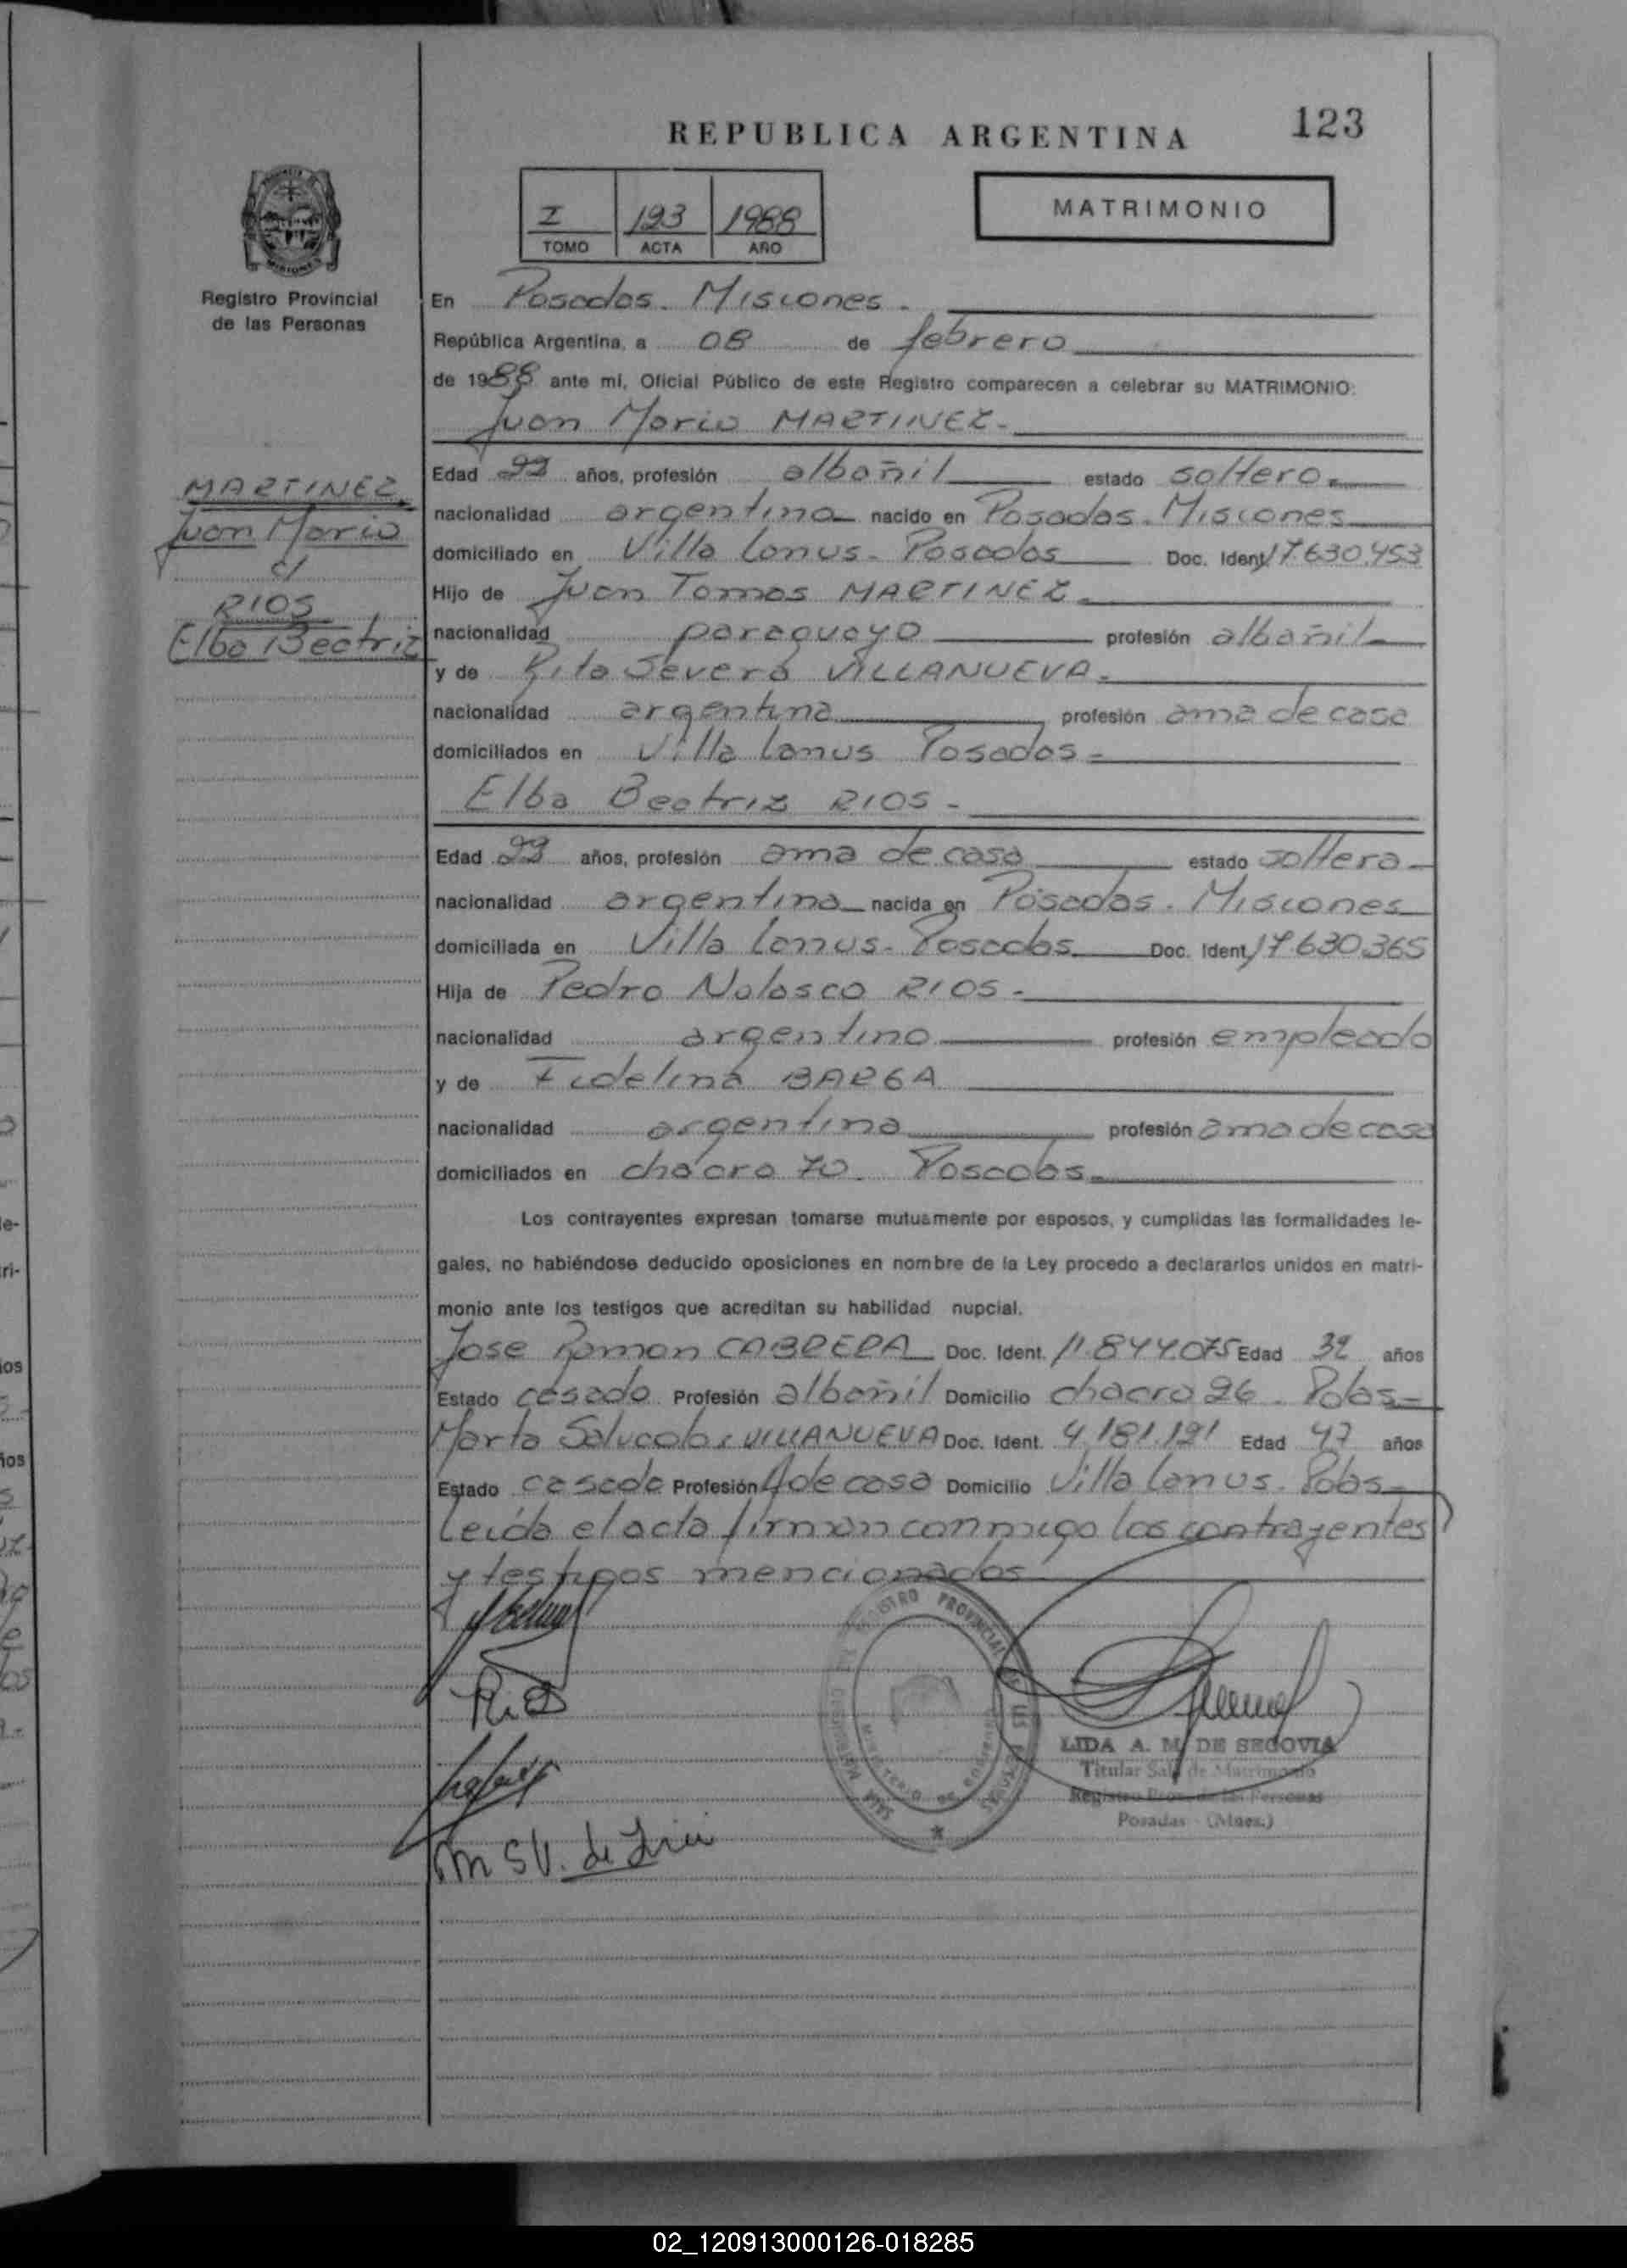 123
REPUBLICA ARGENTINA
MATRIMONIO
I 123 1988
TOMO ACTA AÑO
MISIONES
Registro Provincial
de las Personas
En Posadas. Misiones.
República Argentina, a 08 de febrero
de 1988 ante mí, Oficial Público de este Registro comparecen a celebrar su MATRIMONIO:
Juan Mario MARTINEZ.
MARTINEZ
Juan Mario
c/
RIOS
Elba Beatriz
Edad 22 años, profesión albañil estado soltero.
nacionalidad argentina nacido en Posadas. Misiones
domiciliado en Villa Lanus - Posadas Doc. Ident. 17.630.453
Hijo de Juan Tomas MARTINEZ.
nacionalidad paraguayo profesión albañil
y de Rita Severa VILLANUEVA.
nacionalidad argentina profesión ama de casa
domiciliados en Villa Lanus Posadas -
Elba Beatriz RIOS -
Edad 22 años, profesión ama de casa estado soltera
nacionalidad argentina nacida en Posadas. Misiones
domiciliada en Villa Lanus - Posadas Doc. Ident. 17.630.365
Hija de Pedro Nolasco RIOS -
nacionalidad argentino profesión empleado
y de Fidelina BARGA
nacionalidad argentina profesión ama de casa
domiciliados en chacra 70. Posadas
Los contrayentes expresan tomarse mutuamente por esposos, y cumplidas las formalidades le-
gales, no habiéndose deducido oposiciones en nombre de la Ley procedo a declararlos unidos en matri-
monio ante los testigos que acreditan su habilidad nupcial.
Jose Ramon CABRERA Doc. Ident. 11.844.075 Edad 32 años
Estado casado Profesión albañil Domicilio chacra 26. Pdas
Marta VILLANUEVA Doc. Ident. 4.181.191 Edad 47 años
Estado casada Profesión A de casa Domicilio Villa Lanus. Pdas
Leida el acta firman conmigo los contrayentes
y testigos mencionados
Rios
M S V. de
REGISTRO PROVINCIAL DE LAS PERSONAS
LIDA A. M. DE SEGOVIA
Titular Sala de Matrimonio
Registro Prov. de las Personas
Posadas - (Mnes.)
02_120913000126-018285